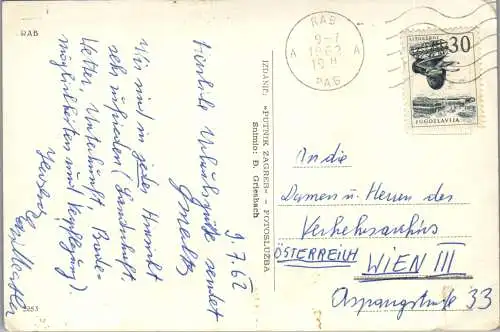 RAB
9.7.62
Herzliche Urlaubsgrüße sendet
Wir sind in jeder Hinsicht
sehr zufrieden (Landschaft
Wetter, Unterkunft, Bade-
möglichkeiten und Verpflegung).
5253
IZDANJE: »PUTNIK ZAGREB« - FOTOSLUŽBA
Snimio: Đ. Griesbach
RAB
9-7
1962
A A
РАБ
30
JUGOSLAVIJA
An die
Damen u. Herren des
Verkehrsamtes
ÖSTERREICH WIEN III
Aspangstraße 33